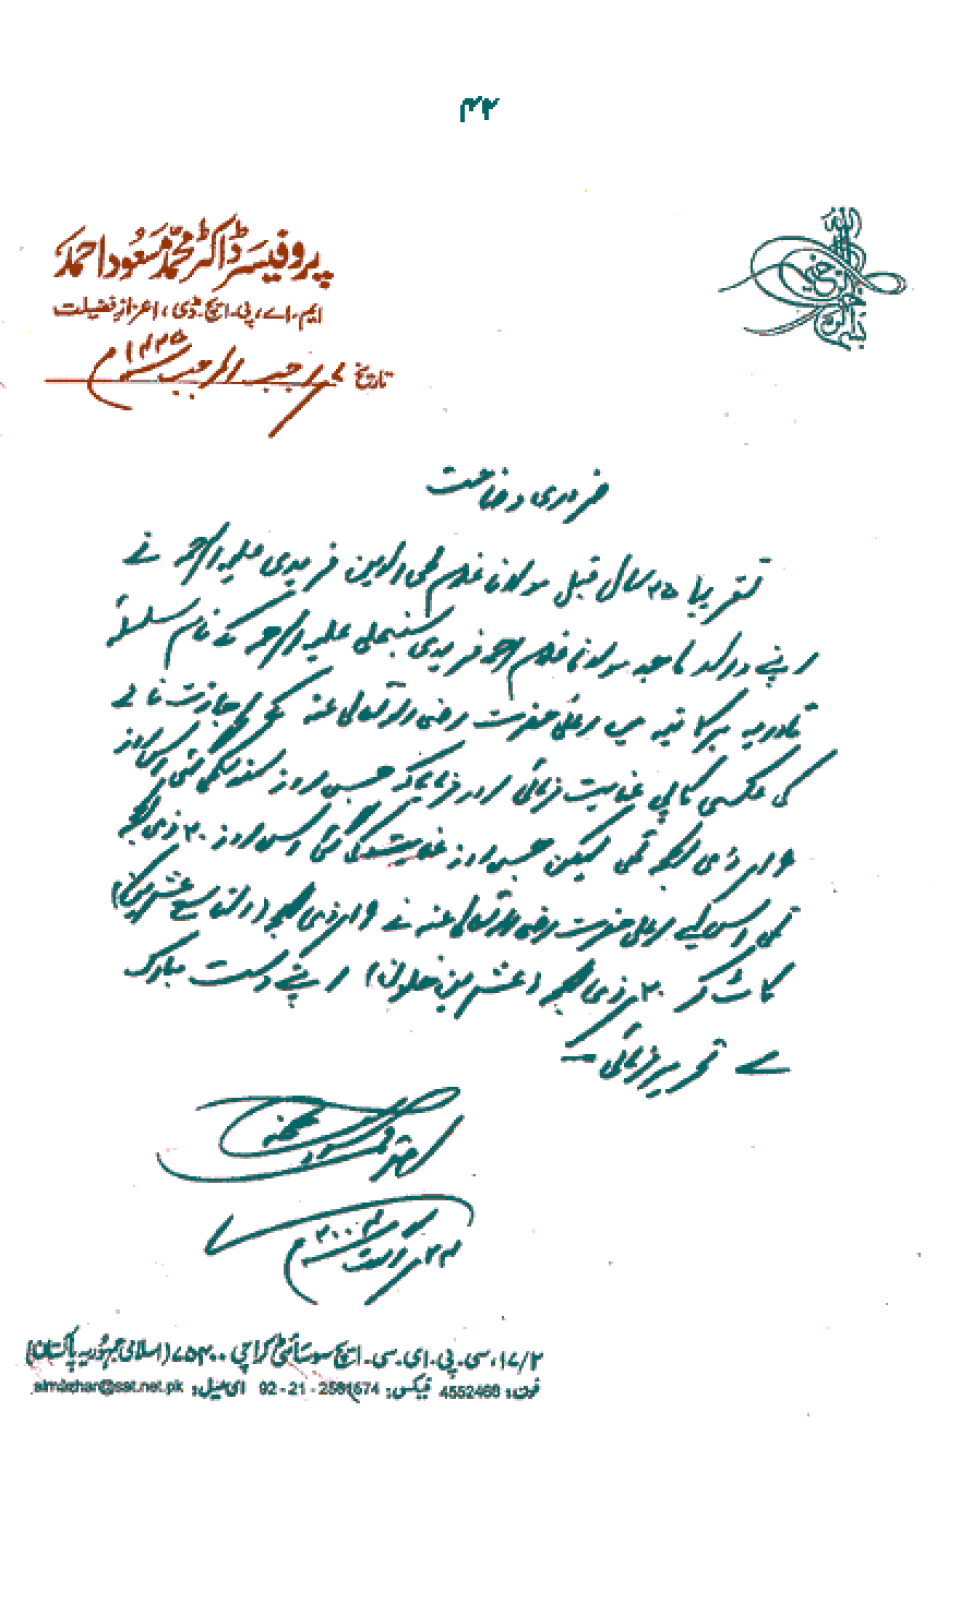 ۴۲
پروفیسر ڈاکٹر محمد مسعود احمد
ایم۔اے، پی۔ایچ۔ڈی، اعزاز فضیلت
تاریخ ۷؍ رجب المرجب ۱۴۲۵ھ
ضروری وضاحت
تقریباً ۲۵ سال قبل مولانا غلام محی الدین فریدی علیہ الرحمہ نے
اپنے والد ماجد مولانا غلام احمد فریدی سنبھلی علیہ الرحمہ کے نام سلسلۂ
قادریہ برکاتیہ میں اعلیٰ حضرت رضی اللہ تعالیٰ عنہ کے اجازت نامے
کی عکسی کاپی عنایت فرمائی اور فرمایا کہ جس روز سند لکھی گئی اس روز
۱۹؍ ذی الحجہ تھی لیکن جس روز عنایت کی گئی اس روز ۲۰ ذی الحجہ
تھی اس لیے اعلیٰ حضرت رضی اللہ تعالیٰ عنہ نے ۱۹؍ ذی الحجہ
کاٹ کر ۲۰؍ ذی الحجہ (عشرین خلون) اپنے دست مبارک
سے تحریر فرمائی۔
احقر محمد مسعود عفی عنہ
۲۴؍ اگست ۲۰۰۴ء
۱۷/۲، سی۔پی۔ای۔سی۔ایچ سوسائٹی کراچی ۷۵۴۰۰ (اسلامی جمہوریہ پاکستان)
فون: 4552468 فیکس: 92-21-2581674 ای میل: almazhar@sat.net.pk